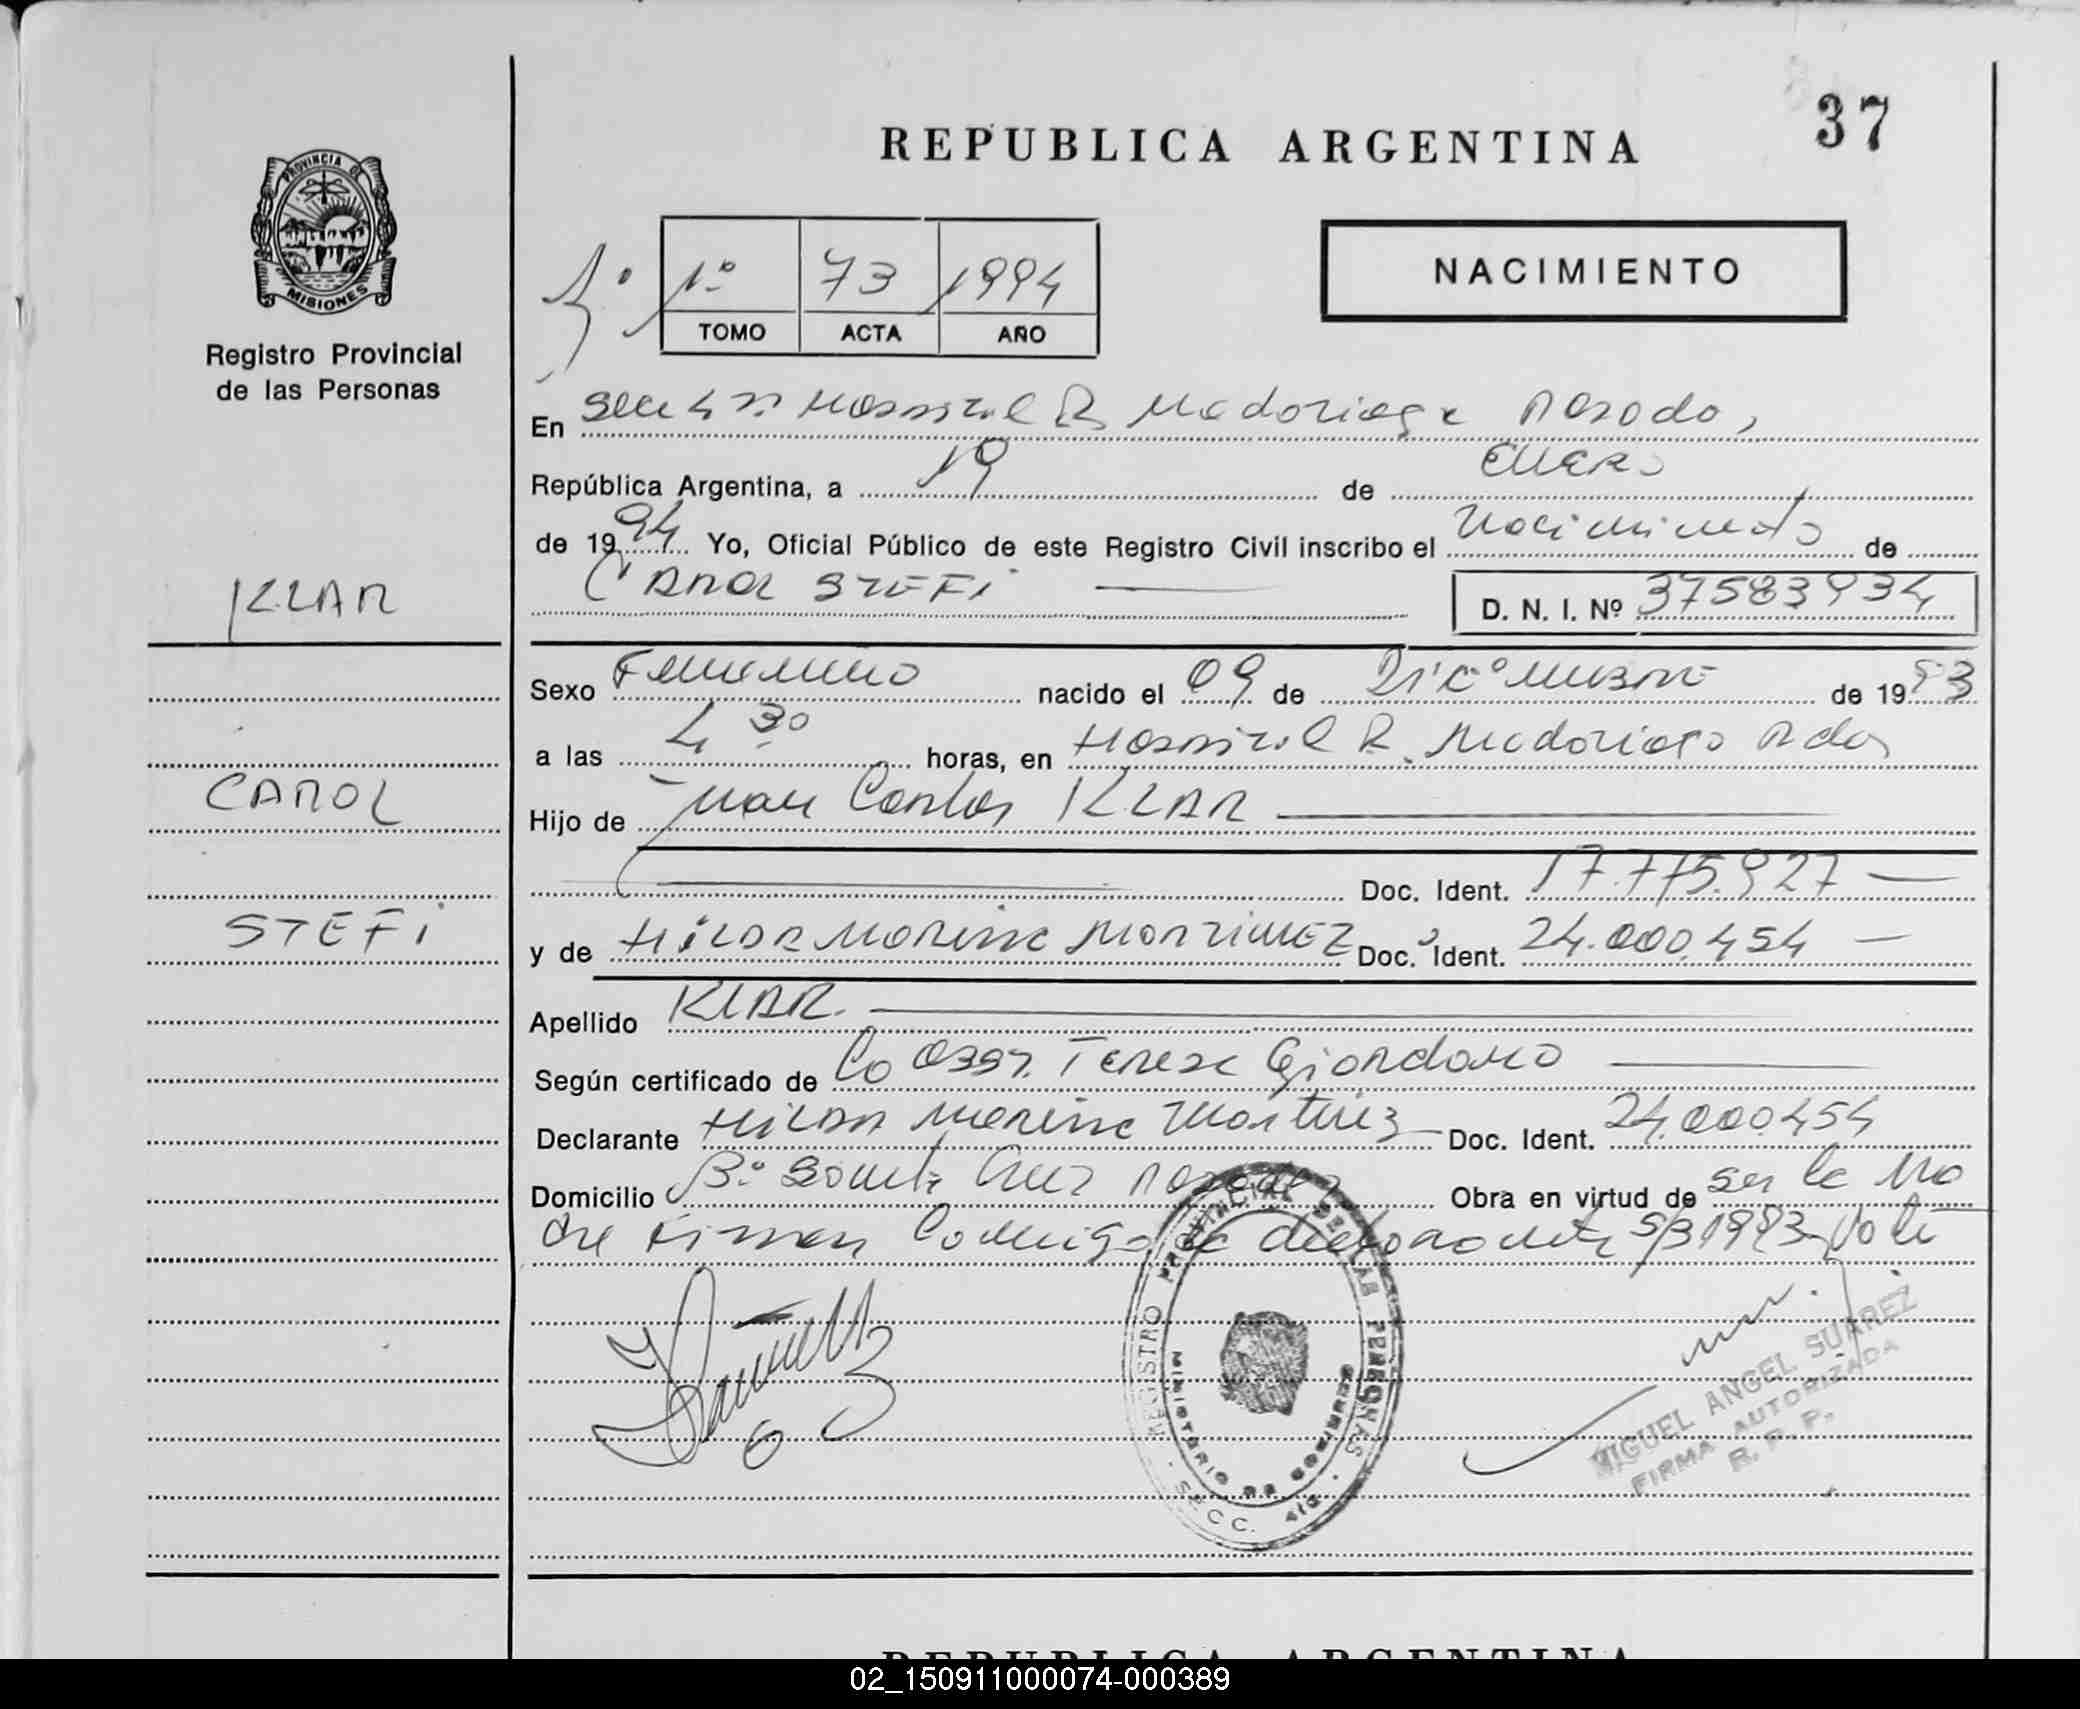 37
REPUBLICA ARGENTINA
PROVINCIA DE
MISIONES
Registro Provincial
de las Personas
NACIMIENTO
1º 73 1994
TOMO ACTA AÑO
En Hospital R Madariaga Posadas,
República Argentina, a 19 de Enero
de 1994 Yo, Oficial Público de este Registro Civil inscribo el Nacimiento de
CAROL STEFI D. N. I. Nº 37583934
KLAR
CAROL
STEFI
Sexo Femenino nacido el 09 de Diciembre de 1993
a las 4 30 horas, en Hospital R. Madariaga Pdas
Hijo de Juan Carlos KLAR
Doc. Ident. 17.775.927
y de HILDA MARINA MARTINEZ Doc. Ident. 24.000.454
Apellido KLAR.
Según certificado de Teresa Giordano
Declarante HILDA Marina Martinez Doc. Ident. 24.000454
Domicilio Bº Santa Cruz Posadas Obra en virtud de ser la Ma
dre Firman Conmigo la declarante S/B 1993
REGISTRO PROVINCIAL DE LAS PERSONAS
MINISTERIO DE GOBIERNO
MIGUEL ANGEL SUAREZ
FIRMA AUTORIZADA
R. P. P.
REPUBLICA ARGENTINA
02_150911000074-000389